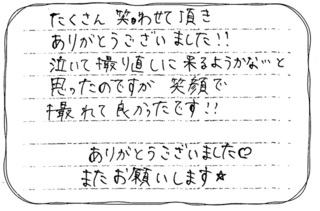 たくさん 笑わせて頂き
ありがとうございました!!
泣いて撮り直しに来るようかな…と
思ったのですが 笑顔で
撮れて良かったです!!
ありがとうございました♡
またお願いします☆